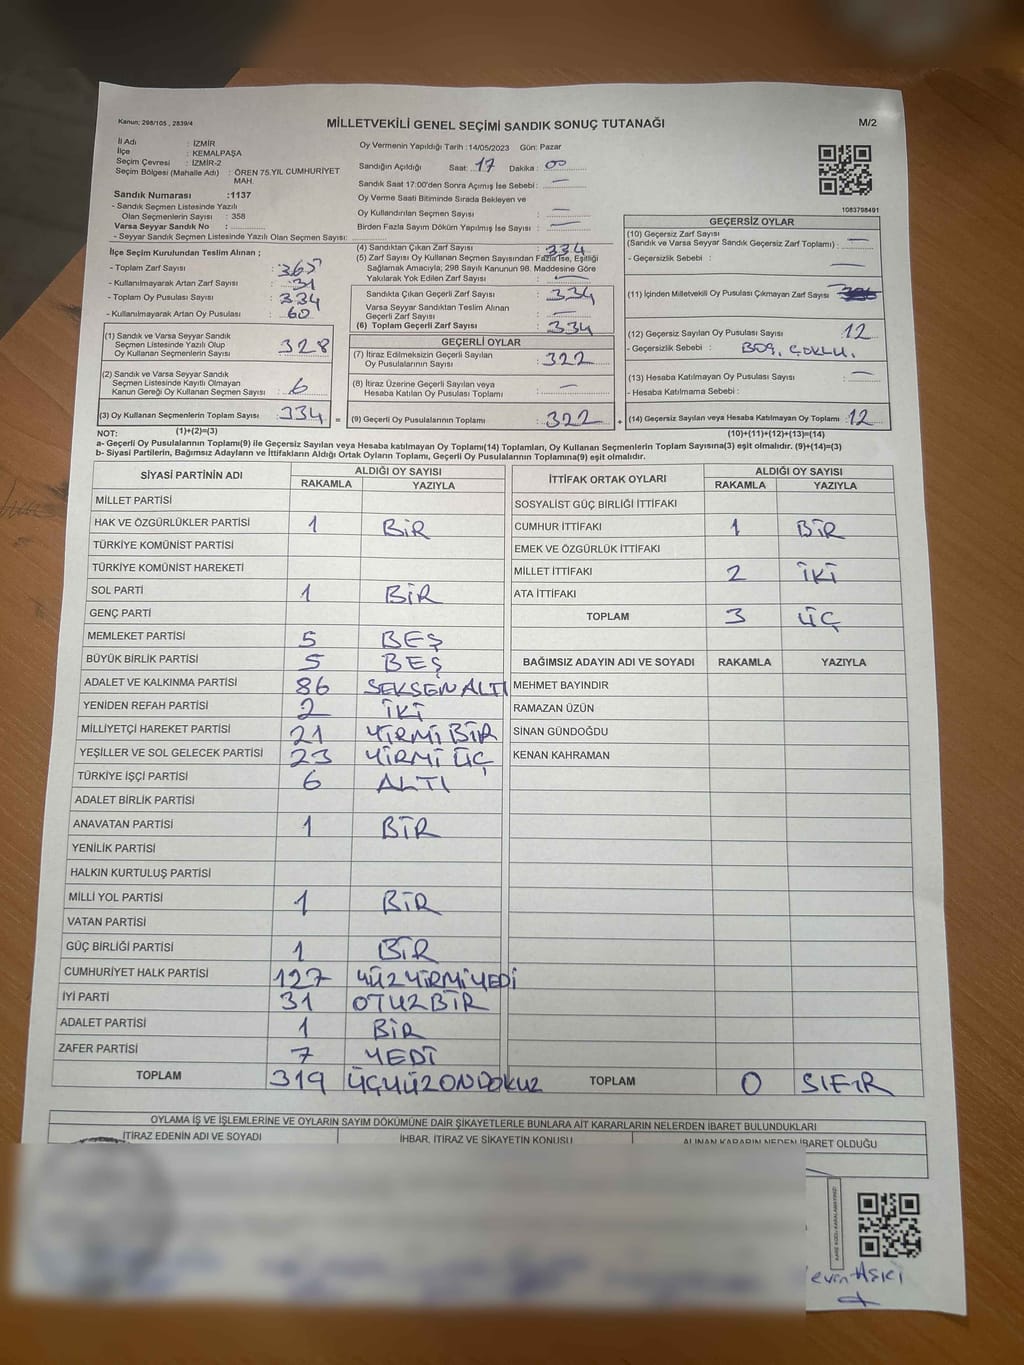 Kanun; 298/105 , 2839/4
MİLLETVEKİLİ GENEL SEÇİMİ SANDIK SONUÇ TUTANAĞI
M/2
İl Adı : İZMİR
İlçe : KEMALPAŞA
Seçim Çevresi : İZMİR-2
Seçim Bölgesi (Mahalle Adı) : ÖREN 75.YIL CUMHURİYET
MAH.
Sandık Numarası :1137
- Sandık Seçmen Listesinde Yazılı
Olan Seçmenlerin Sayısı : 358
Varsa Seyyar Sandık No :
- Seyyar Sandık Seçmen Listesinde Yazılı Olan Seçmen Sayısı:
Oy Vermenin Yapıldığı Tarih :14/05/2023 Gün: Pazar
Sandığın Açıldığı Saat: 17 Dakika : 00
Sandık Saat 17:00'den Sonra Açımış İse Sebebi : —
Oy Verme Saati Bitiminde Sırada Bekleyen ve
Oy Kullandırılan Seçmen Sayısı : —
Birden Fazla Sayım Döküm Yapılmış İse Sayısı : —
1083798491
İlçe Seçim Kurulundan Teslim Alınan ;
- Toplam Zarf Sayısı : 365
- Kullanılmayarak Artan Zarf Sayısı : 31
- Toplam Oy Pusulası Sayısı : 334
- Kullanılmayarak Artan Oy Pusulası : 60
(1) Sandık ve Varsa Seyyar Sandık
Seçmen Listesinde Yazılı Olup
Oy Kullanan Seçmenlerin Sayısı : 328
(2) Sandık ve Varsa Seyyar Sandık
Seçmen Listesinde Kayıtlı Olmayan
Kanun Gereği Oy Kullanan Seçmen Sayısı : 6
(3) Oy Kullanan Seçmenlerin Toplam Sayısı : 334 =
(1)+(2)=(3)
(4) Sandıktan Çıkan Zarf Sayısı : 334
(5) Zarf Sayısı Oy Kullanan Seçmen Sayısından Fazla İse, Eşitliği
Sağlamak Amacıyla; 298 Sayılı Kanunun 98. Maddesine Göre
Yakılarak Yok Edilen Zarf Sayısı : —
Sandıkta Çıkan Geçerli Zarf Sayısı : 334
Varsa Seyyar Sandıktan Teslim Alınan
Geçerli Zarf Sayısı : —
(6) Toplam Geçerli Zarf Sayısı : 334
GEÇERLİ OYLAR
(7) İtiraz Edilmeksizin Geçerli Sayılan
Oy Pusulalarının Sayısı : 322
(8) İtiraz Üzerine Geçerli Sayılan veya
Hesaba Katılan Oy Pusulası Toplamı : —
(9) Geçerli Oy Pusulalarının Toplamı : 322 +
GEÇERSİZ OYLAR
(10) Geçersiz Zarf Sayısı
(Sandık ve Varsa Seyyar Sandık Geçersiz Zarf Toplamı) : —
- Geçersizlik Sebebi : —
(11) İçinden Milletvekili Oy Pusulası Çıkmayan Zarf Sayısı
(12) Geçersiz Sayılan Oy Pusulası Sayısı : 12
- Geçersizlik Sebebi : BOŞ, ÇOKLU.
(13) Hesaba Katılmayan Oy Pusulası Sayısı : —
- Hesaba Katılmama Sebebi :
(14) Geçersiz Sayılan veya Hesaba Katılmayan Oy Toplamı : 12
(10)+(11)+(12)+(13)=(14)
NOT:
a- Geçerli Oy Pusulalarının Toplamı(9) ile Geçersiz Sayılan veya Hesaba katılmayan Oy Toplamı(14) Toplamları, Oy Kullanan Seçmenlerin Toplam Sayısına(3) eşit olmalıdır. (9)+(14)=(3)
b- Siyasi Partilerin, Bağımsız Adayların ve İttifakların Aldığı Ortak Oyların Toplamı, Geçerli Oy Pusulalarının Toplamına(9) eşit olmalıdır.
SİYASİ PARTİNİN ADI ALDIĞI OY SAYISI
RAKAMLA YAZIYLA
MİLLET PARTİSİ
HAK VE ÖZGÜRLÜKLER PARTİSİ 1 BİR
TÜRKİYE KOMÜNİST PARTİSİ
TÜRKİYE KOMÜNİST HAREKETİ
SOL PARTİ 1 BİR
GENÇ PARTİ
MEMLEKET PARTİSİ 5 BEŞ
BÜYÜK BİRLİK PARTİSİ 5 BEŞ
ADALET VE KALKINMA PARTİSİ 86 SEKSEN ALTI
YENİDEN REFAH PARTİSİ 2 İKİ
MİLLİYETÇİ HAREKET PARTİSİ 21 YİRMİ BİR
YEŞİLLER VE SOL GELECEK PARTİSİ 23 YİRMİ ÜÇ
TÜRKİYE İŞÇİ PARTİSİ 6 ALTI
ADALET BİRLİK PARTİSİ
ANAVATAN PARTİSİ 1 BİR
YENİLİK PARTİSİ
HALKIN KURTULUŞ PARTİSİ
MİLLİ YOL PARTİSİ 1 BİR
VATAN PARTİSİ
GÜÇ BİRLİĞİ PARTİSİ 1 BİR
CUMHURİYET HALK PARTİSİ 127 YÜZ YİRMİ YEDİ
İYİ PARTİ 31 OTUZ BİR
ADALET PARTİSİ 1 BİR
ZAFER PARTİSİ 7 YEDİ
TOPLAM 319 ÜÇYÜZ ONDOKUZ
İTTİFAK ORTAK OYLARI ALDIĞI OY SAYISI
RAKAMLA YAZIYLA
SOSYALİST GÜÇ BİRLİĞİ İTTİFAKI
CUMHUR İTTİFAKI 1 BİR
EMEK VE ÖZGÜRLÜK İTTİFAKI
MİLLET İTTİFAKI 2 İKİ
ATA İTTİFAKI
TOPLAM 3 ÜÇ
BAĞIMSIZ ADAYIN ADI VE SOYADI RAKAMLA YAZIYLA
MEHMET BAYINDIR
RAMAZAN ÜZÜN
SİNAN GÜNDOĞDU
KENAN KAHRAMAN
TOPLAM 0 SIFIR
OYLAMA İŞ VE İŞLEMLERİNE VE OYLARIN SAYIM DÖKÜMÜNE DAİR ŞİKAYETLERLE BUNLARA AİT KARARLARIN NELERDEN İBARET BULUNDUKLARI
İTİRAZ EDENİN ADI VE SOYADI İHBAR, İTİRAZ VE ŞİKAYETİN KONUSU ALINAN KARARIN NEDEN İBARET OLDUĞU